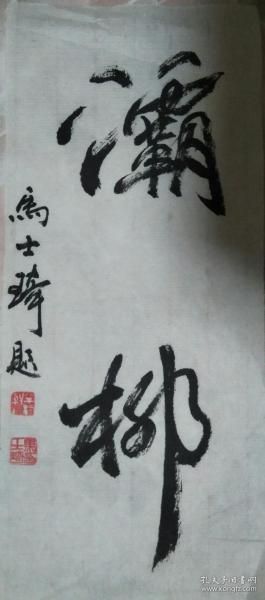 灞柳
馬士琦題
孔夫子旧书网
www.kongfz.com